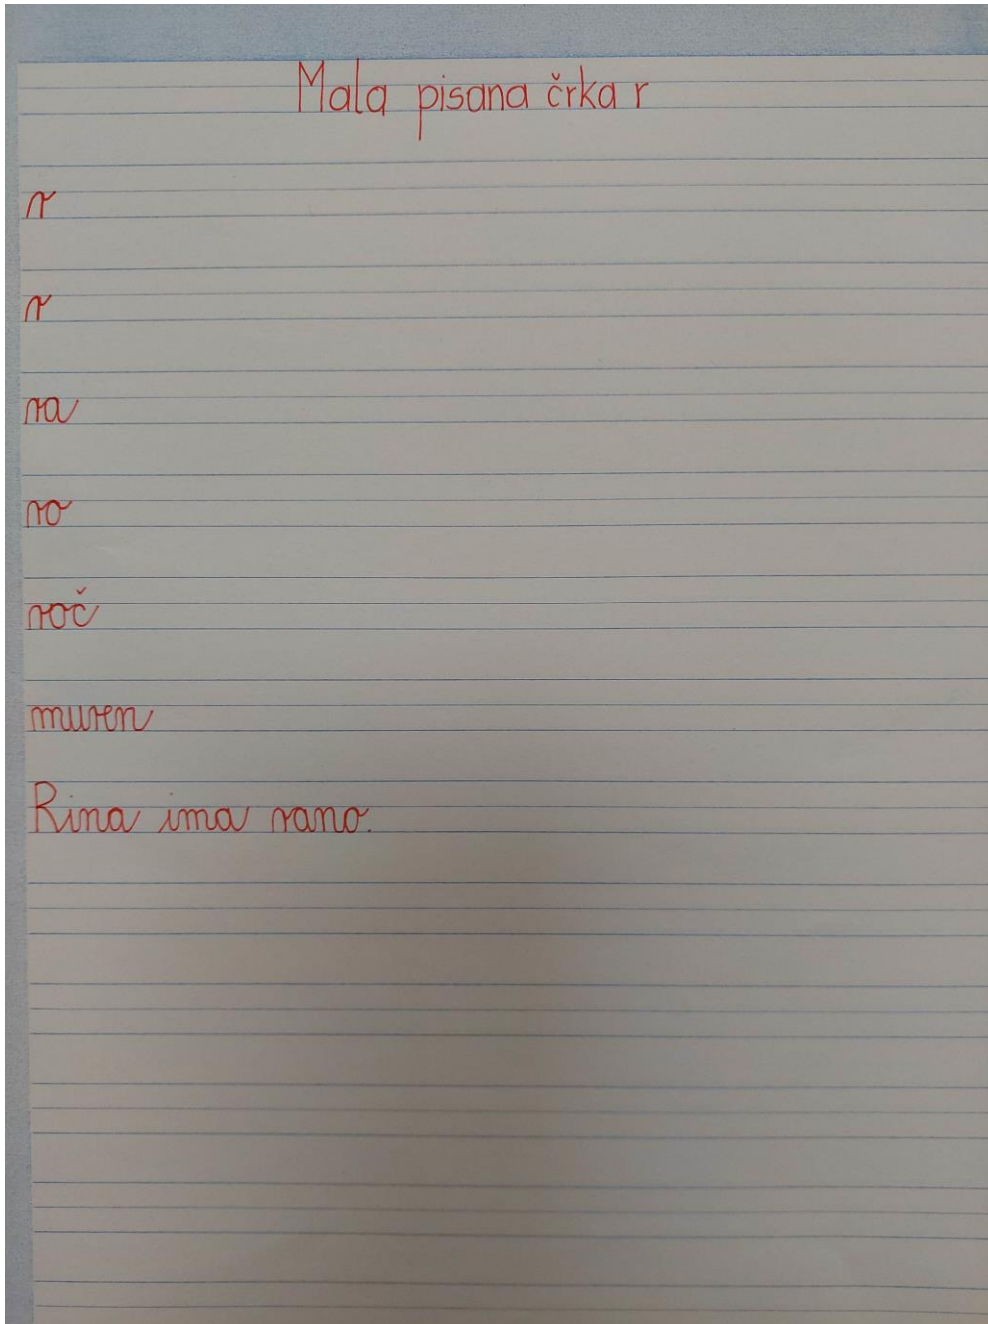 Mala pisana črka r
r
r
ra
ro
roč
muren
Rina ima rano.